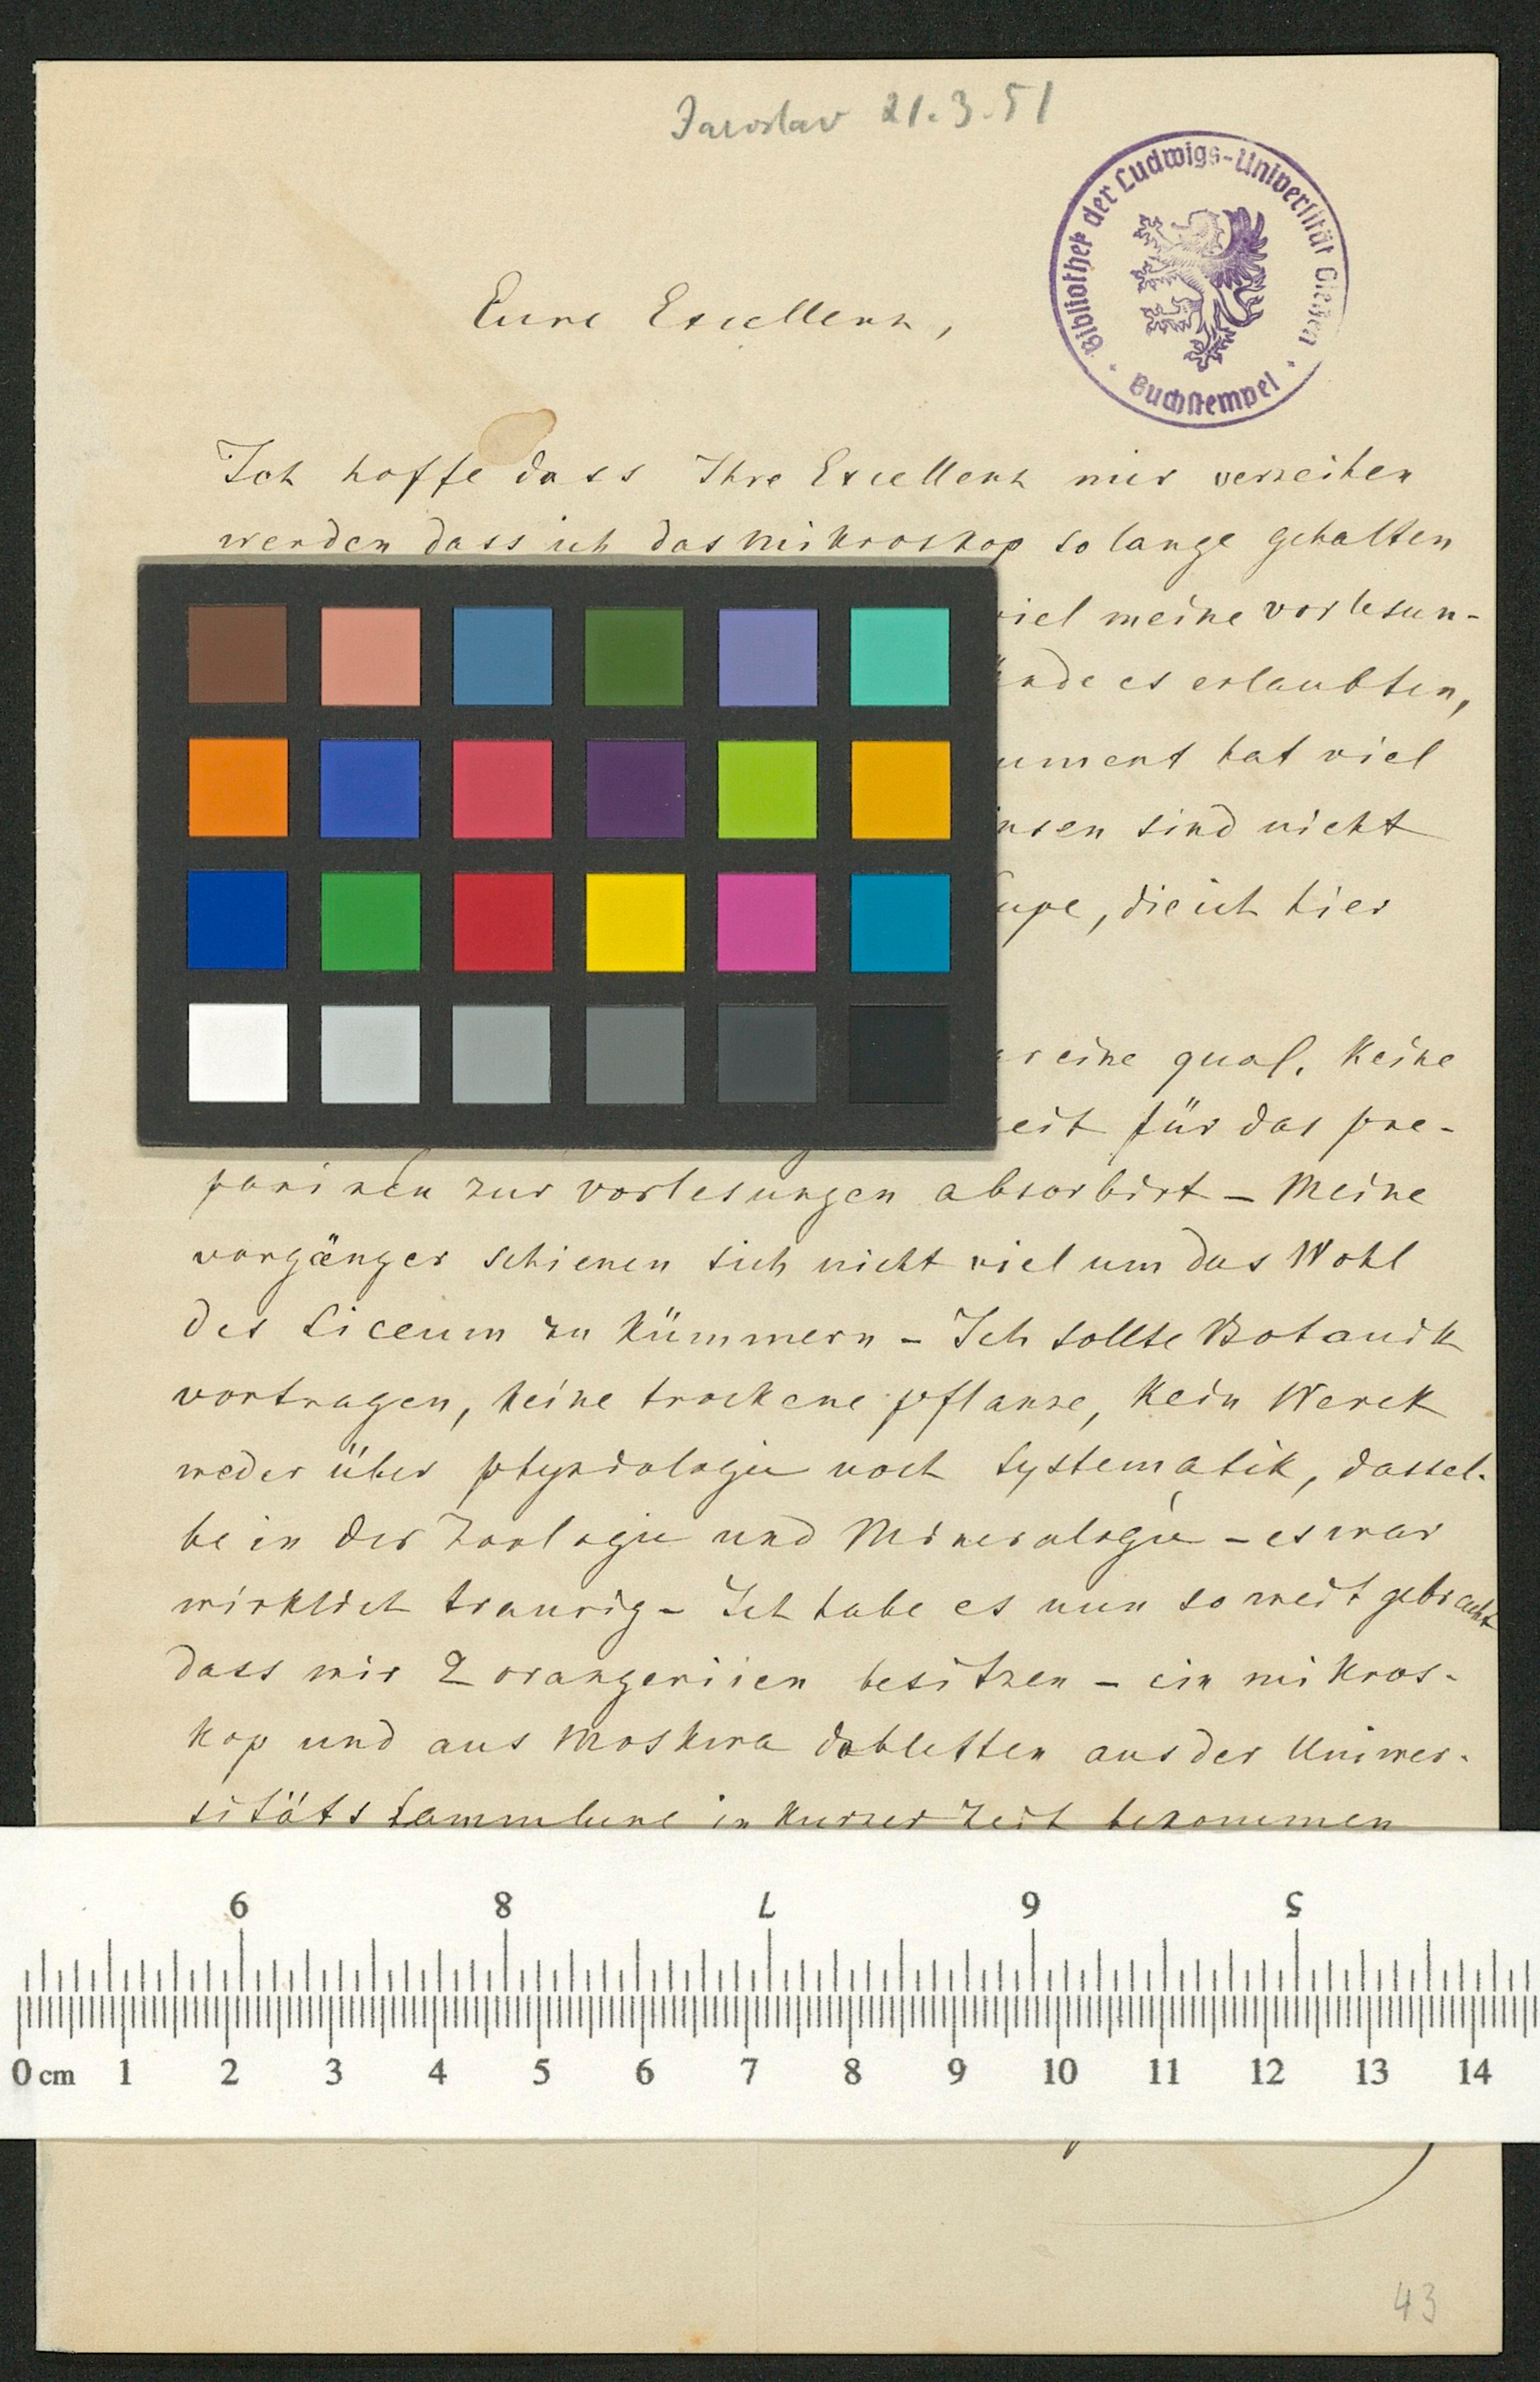 Jaroslav 21.3.51
Bibliothek der Ludwigs-Universität Gießen
Buchstempel
Eure Excellenz,
Ich hoffe dass Ihre Excellenz mir verzeihen
werden dass ich das Mikroskop so lange gehalten
viel meine vorlesun-
es erlaubten,
hat viel
sind nicht
die ich hier
eine qual, Keine
für das pre-
pariren zur vorlesungen absorbirt - Meine
vorgänger schienen sich nicht viel um das Wohl
des Liceum zu kümmern - Ich sollte Botanik
vortragen, keine trockene pflanze, kein Werck
weder über physiologie noch systematik, dassel-
be in der Zoologie und Mineralogie - es war
wirklich traurig - Ich habe es nun so weit gebracht
dass wir 2 orangeriien besitzen - ein mikros-
kop und aus Moskwa dobletten aus der Univer-
sitäts Sammlung in kurzer Zeit bekommen
9 8 7 6 5
0 cm 1 2 3 4 5 6 7 8 9 10 11 12 13 14
43